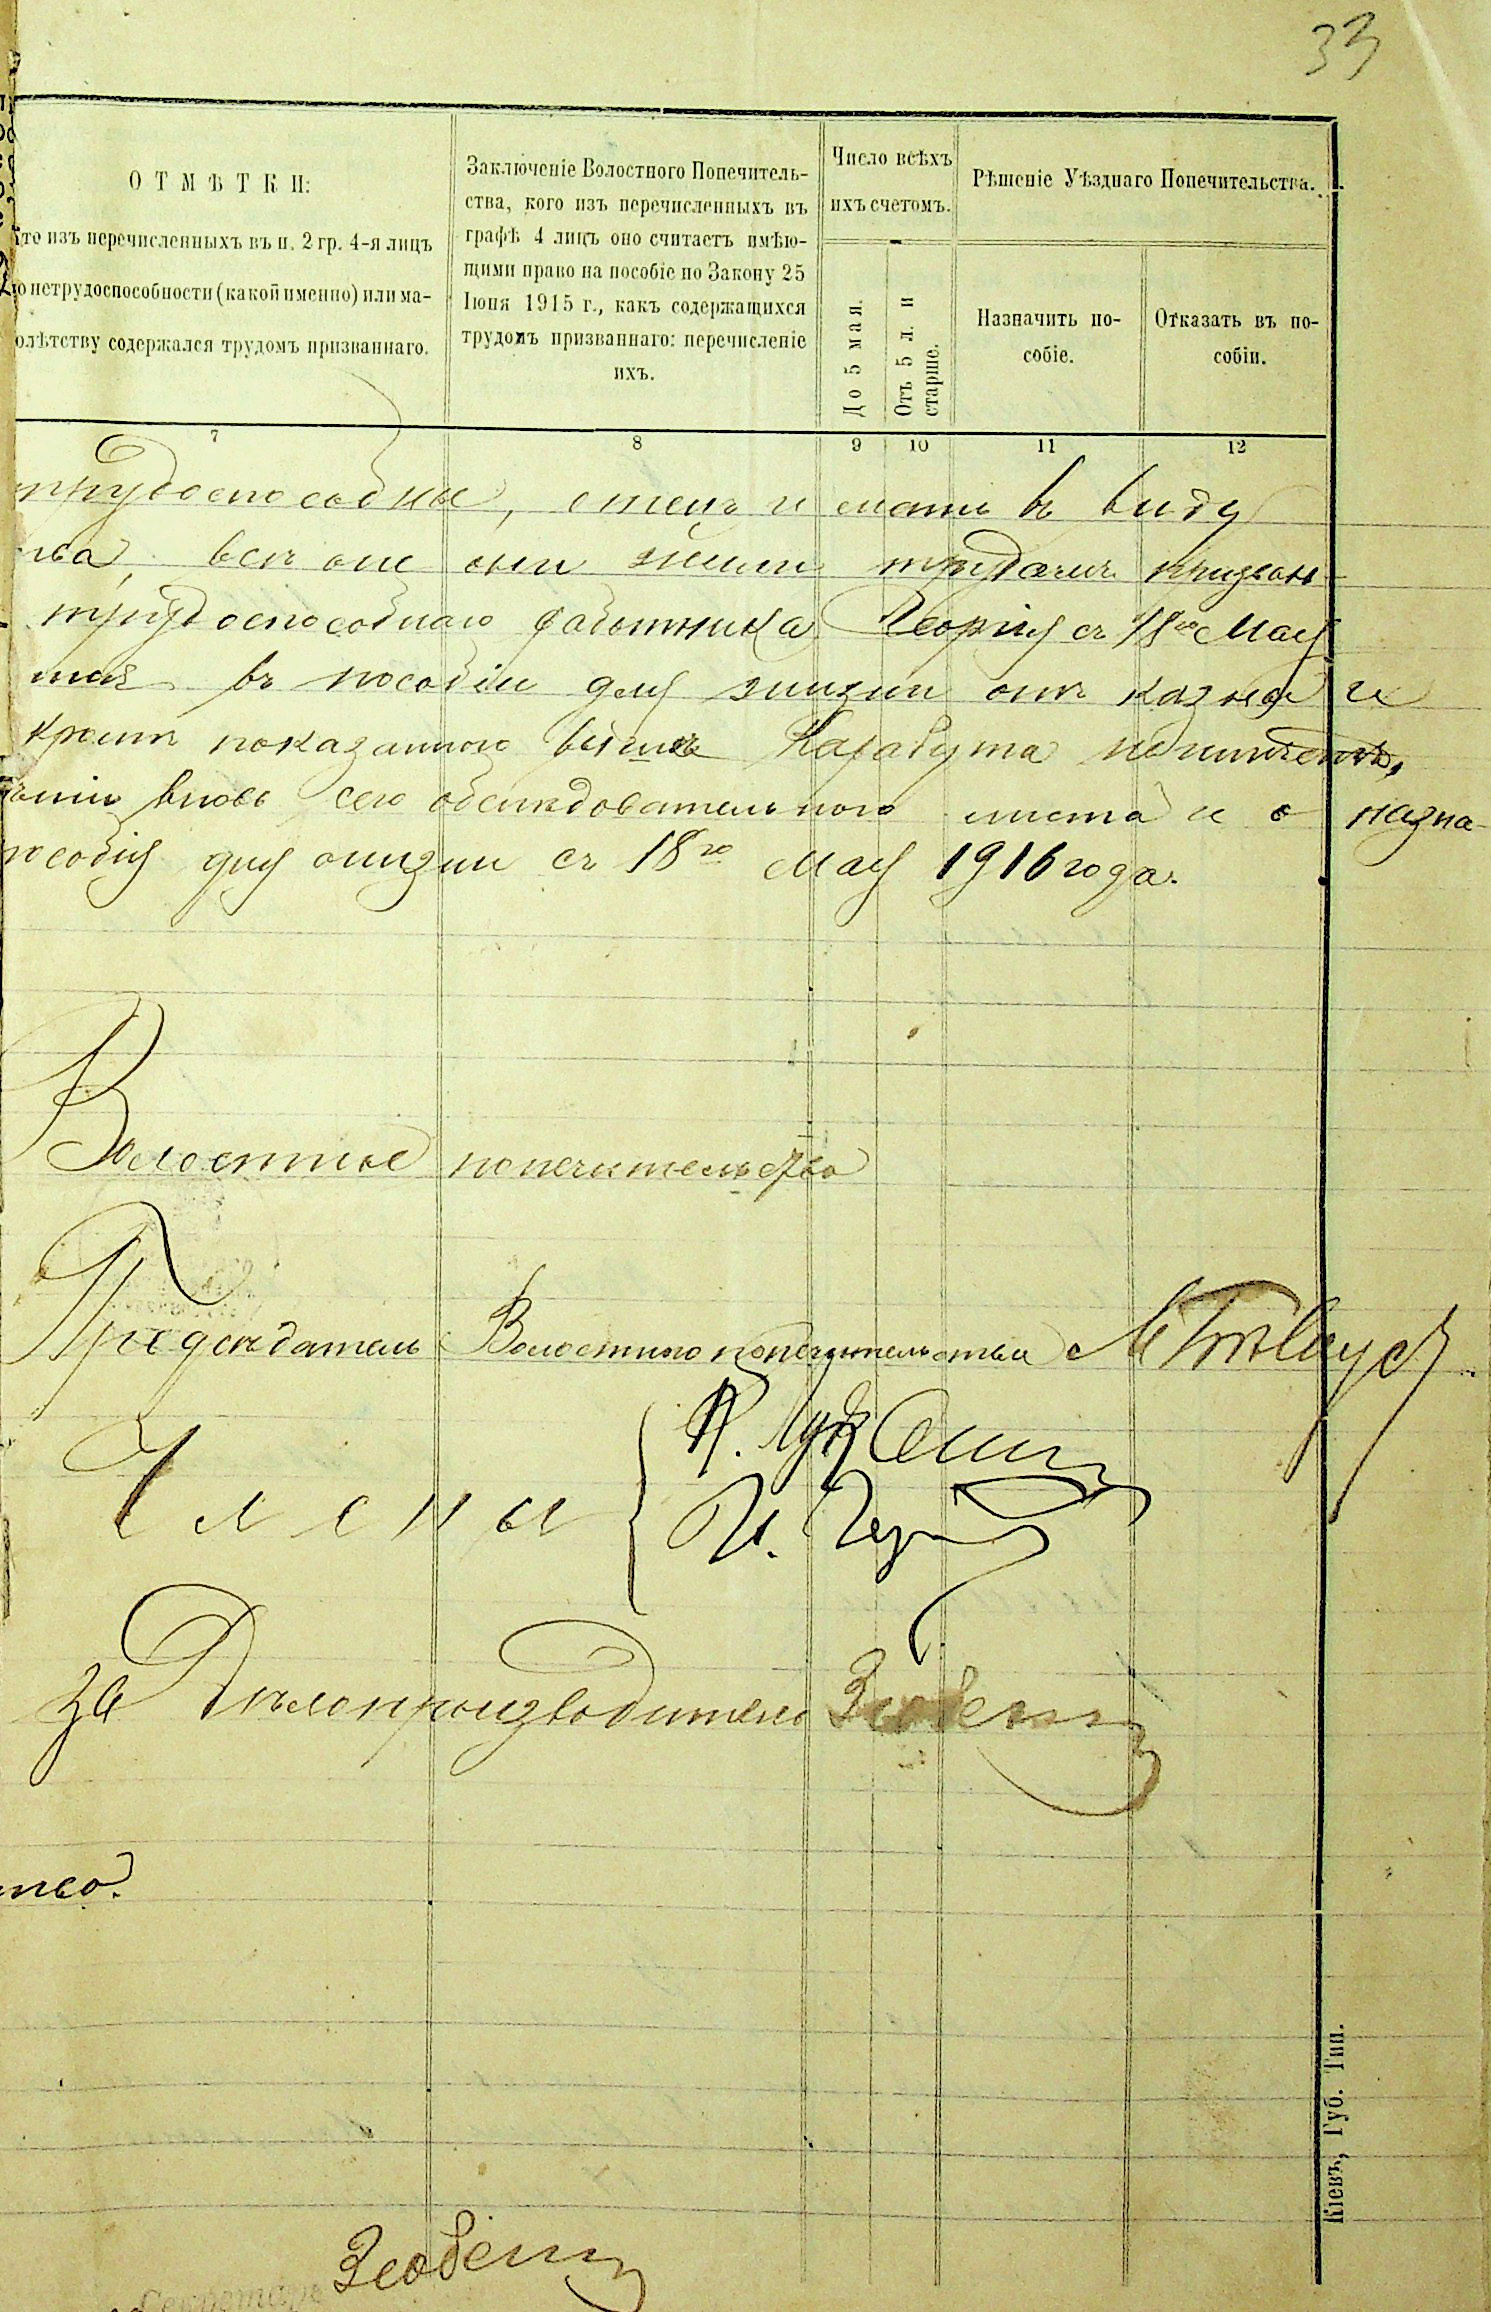 33
ОТМѢТКИ:
то изъ перечисленныхъ въ п. 2 гр. 4-я лицъ
о нетрудоспособности (какой именно) или ма-
олѣтству содержался трудомъ призваннаго.
Заключеніе Волостного Попечитель-
ства, кого изъ перечисленныхъ въ
графѣ 4 лицъ оно считаетъ имѣю-
щими право на пособіе по Закону 25
Іюня 1915 г., какъ содержащихся
трудомъ призваннаго: перечисленіе
ихъ.
Число всѣхъ
ихъ счетомъ.
До 5 мая.
Отъ 5 л. и
старше.
Рѣшеніе Уѣзднаго Попечительства.
Назначить по-
собіе.
Отказать въ по-
собіи.
7 8 9 10 11 12
трудоспособны, отецъ и мать въ виду
ва, всѣ они жили трудомъ призван
трудоспособнаго работника Георгія съ 18го Мая
въ пособіи для жизни отъ казны и
кромѣ показаннаго выше Карабута
вновь сего обслѣдовательнаго листа и о назна-
пособія для жизни съ 18го Мая 1916 года.
Волостное попечительство
Предсѣдатель Волостного попечительства
Члены
К.
И.
за Дѣлопроизводителя
тво.
Секретарь
Кіевъ, Губ. Тип.